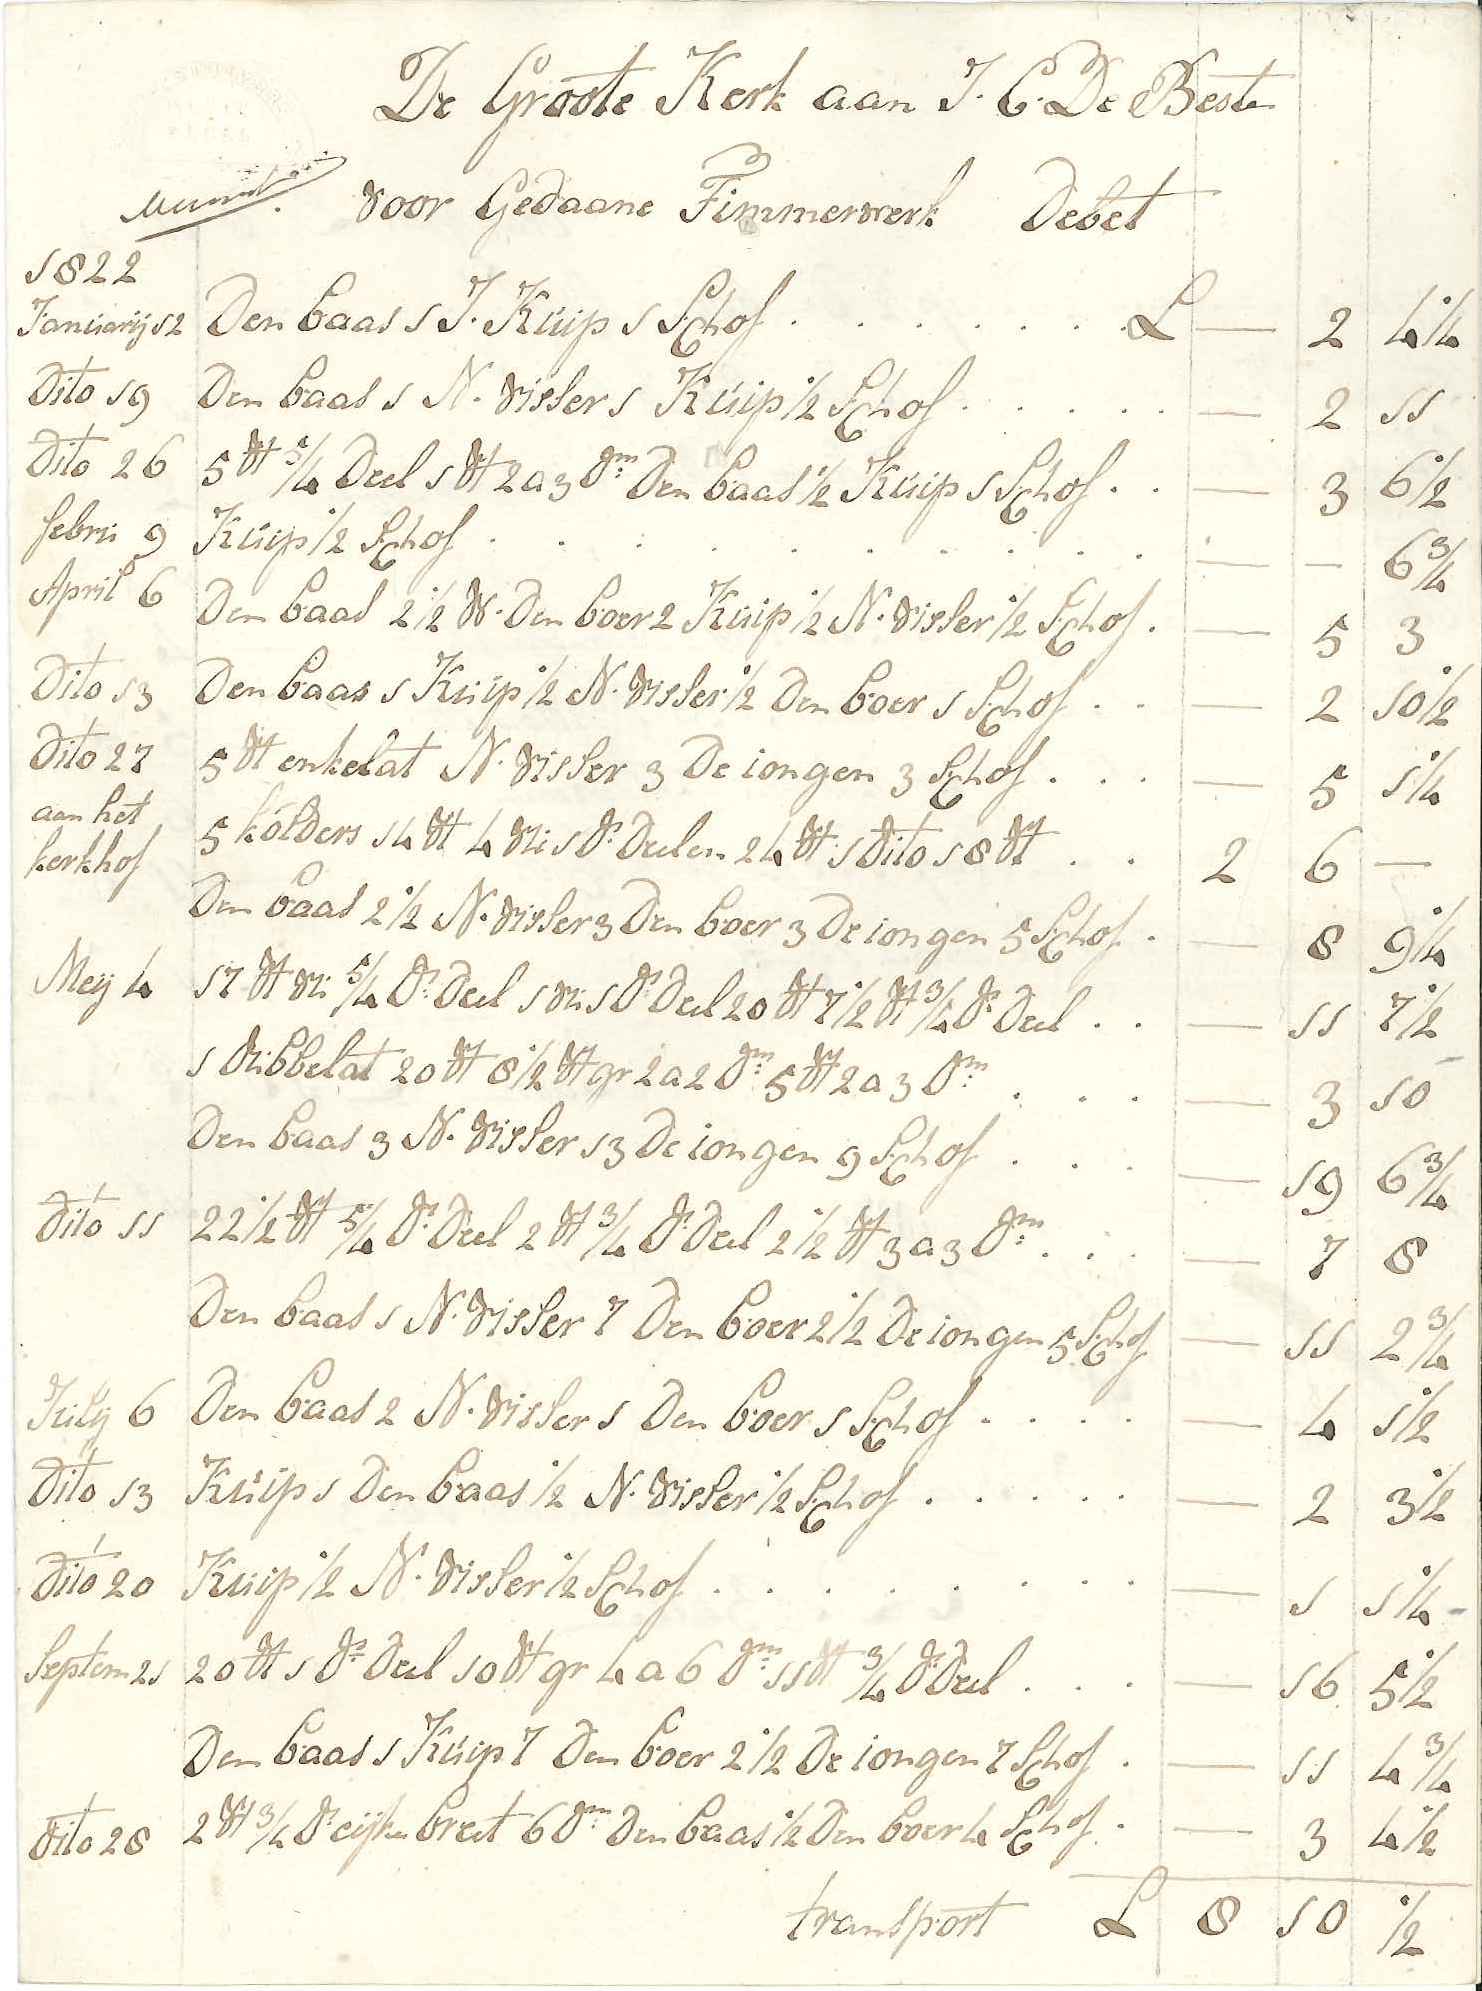 De Groote Kerk aan J. C. De Best
voor Gedaane Timmerwerk Debet
1822
Januarij 12 Den baas 1 J. Kuip 1 Schof . . . . . . . £ — 2 4 1/4
Dito 19 Den baas 1 N. Visser 1 Kuip 1/2 Schof . . . . . — 2 11
Dito 26 5 vt 5/4 Deel 1 vt 2 a 3 Dm Den baas 1/2 Kuip 1 Schof . . — 3 6 1/2
febru 9 Kuip 1/2 Schof . . . . . . . . . — — 6 3/4
April 6 Den baas 2 1/2 W. Den boer 2 Kuip 1/2 N. Visser 1/2 Schof . — 5 3
Dito 13 Den baas 1 Kuip 1/2 N. Visser 1/2 Den boer 1 Schof . . — 2 10 1/2
Dito 27 5 vt enkelat N. Visser 3 De iongen 3 Schof . . . — 5 1 1/4
aan het
kerkhof 5 kolders 14 vt 4 vri 1 Ds Deelen 24 vt 1 Dito 18 vt . . 2 6 —
Den baas 2 1/2 N. Visser 3 Den boer 3 De iongen 5 Schof . — 8 9 1/4
Meij 4 17 vt vri 5/4 Ds Deel 1 vri 1 Ds Deel 20 vt 7 1/2 vt 3/4 Ds Deel . . — 11 7 1/2
1 Ribbelat 20 vt 8 1/2 vt gr 2 a 2 Dm 5 vt 2 a 3 Dm . . . — 3 10
Den baas 3 N. Visser 13 De iongen 9 Schof . . . — 19 6 3/4
Dito 11 22 1/2 vt 5/4 Ds Deel 2 vt 3/4 Ds Deel 2 1/2 vt 3 a 3 Dm . . . — 7 8
Den baas 1 N. Visser 7 Den boer 2 1/2 De iongen 5 Schof — 11 2 3/4
Julij 6 Den baas 2 N. Visser 1 Den boer 1 Schof . . . . — 4 1 1/2
Dito 13 Kuip 1 Den baas 1/2 N. Visser 1/2 Schof . . . . . — 2 3 1/2
Dito 20 Kuip 1/2 N. Visser 1/2 Schof . . . . . . . — 1 1 1/4
Septem 21 20 vt 1 Ds Deel 10 vt gr 4 a 6 Dm 11 vt 3/4 Ds Deel . . . — 16 5 1/2
Den baas 1 Kuip 7 Den boer 2 1/2 De iongen 7 Schof . — 11 4 3/4
Dito 28 2 vt 3/4 Ds eijken breet 6 Dm Den baas 1/2 Den boer 4 Schof . — 3 4 1/2
transport £ 8 10 1/2